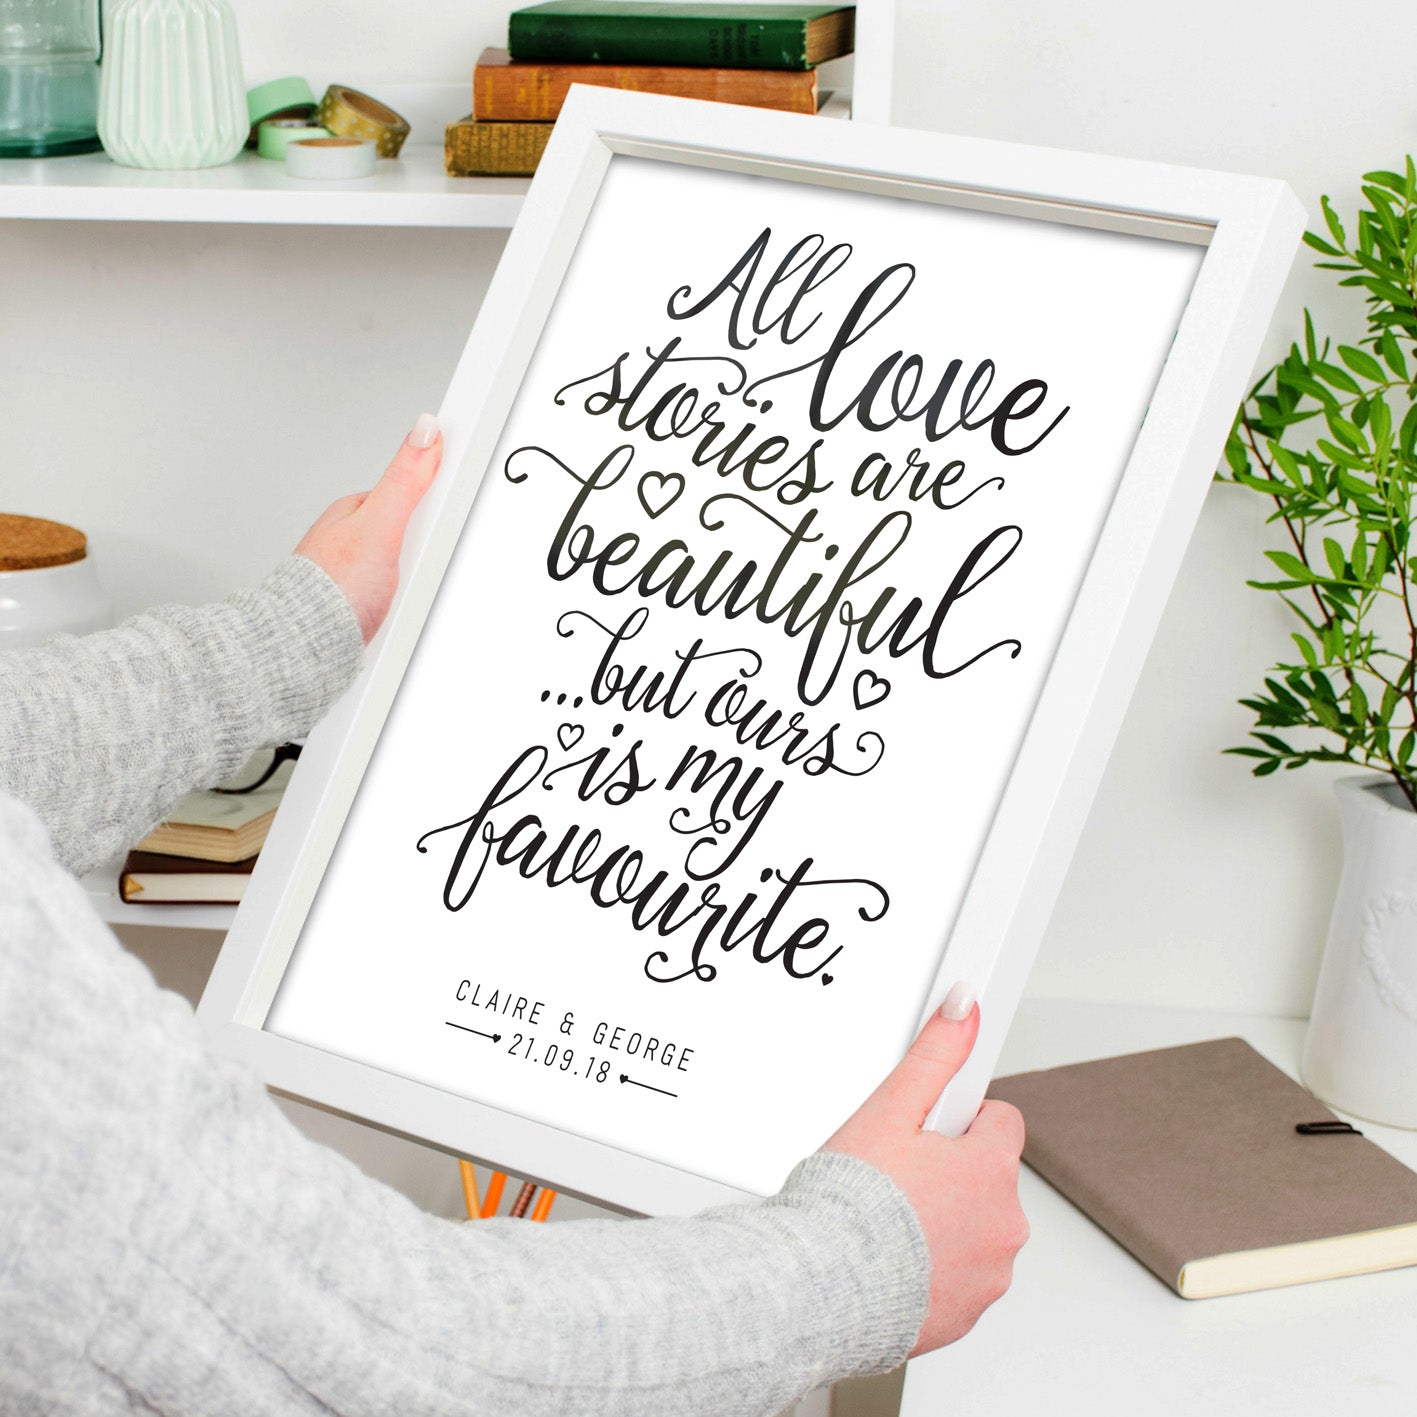 All love
stories are
beautiful
...but ours
is my
favourite.
CLAIRE & GEORGE
21.09.18